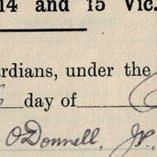 14 and 15 Vic.
rdians, under the
day of
O'Donnell, J.P.